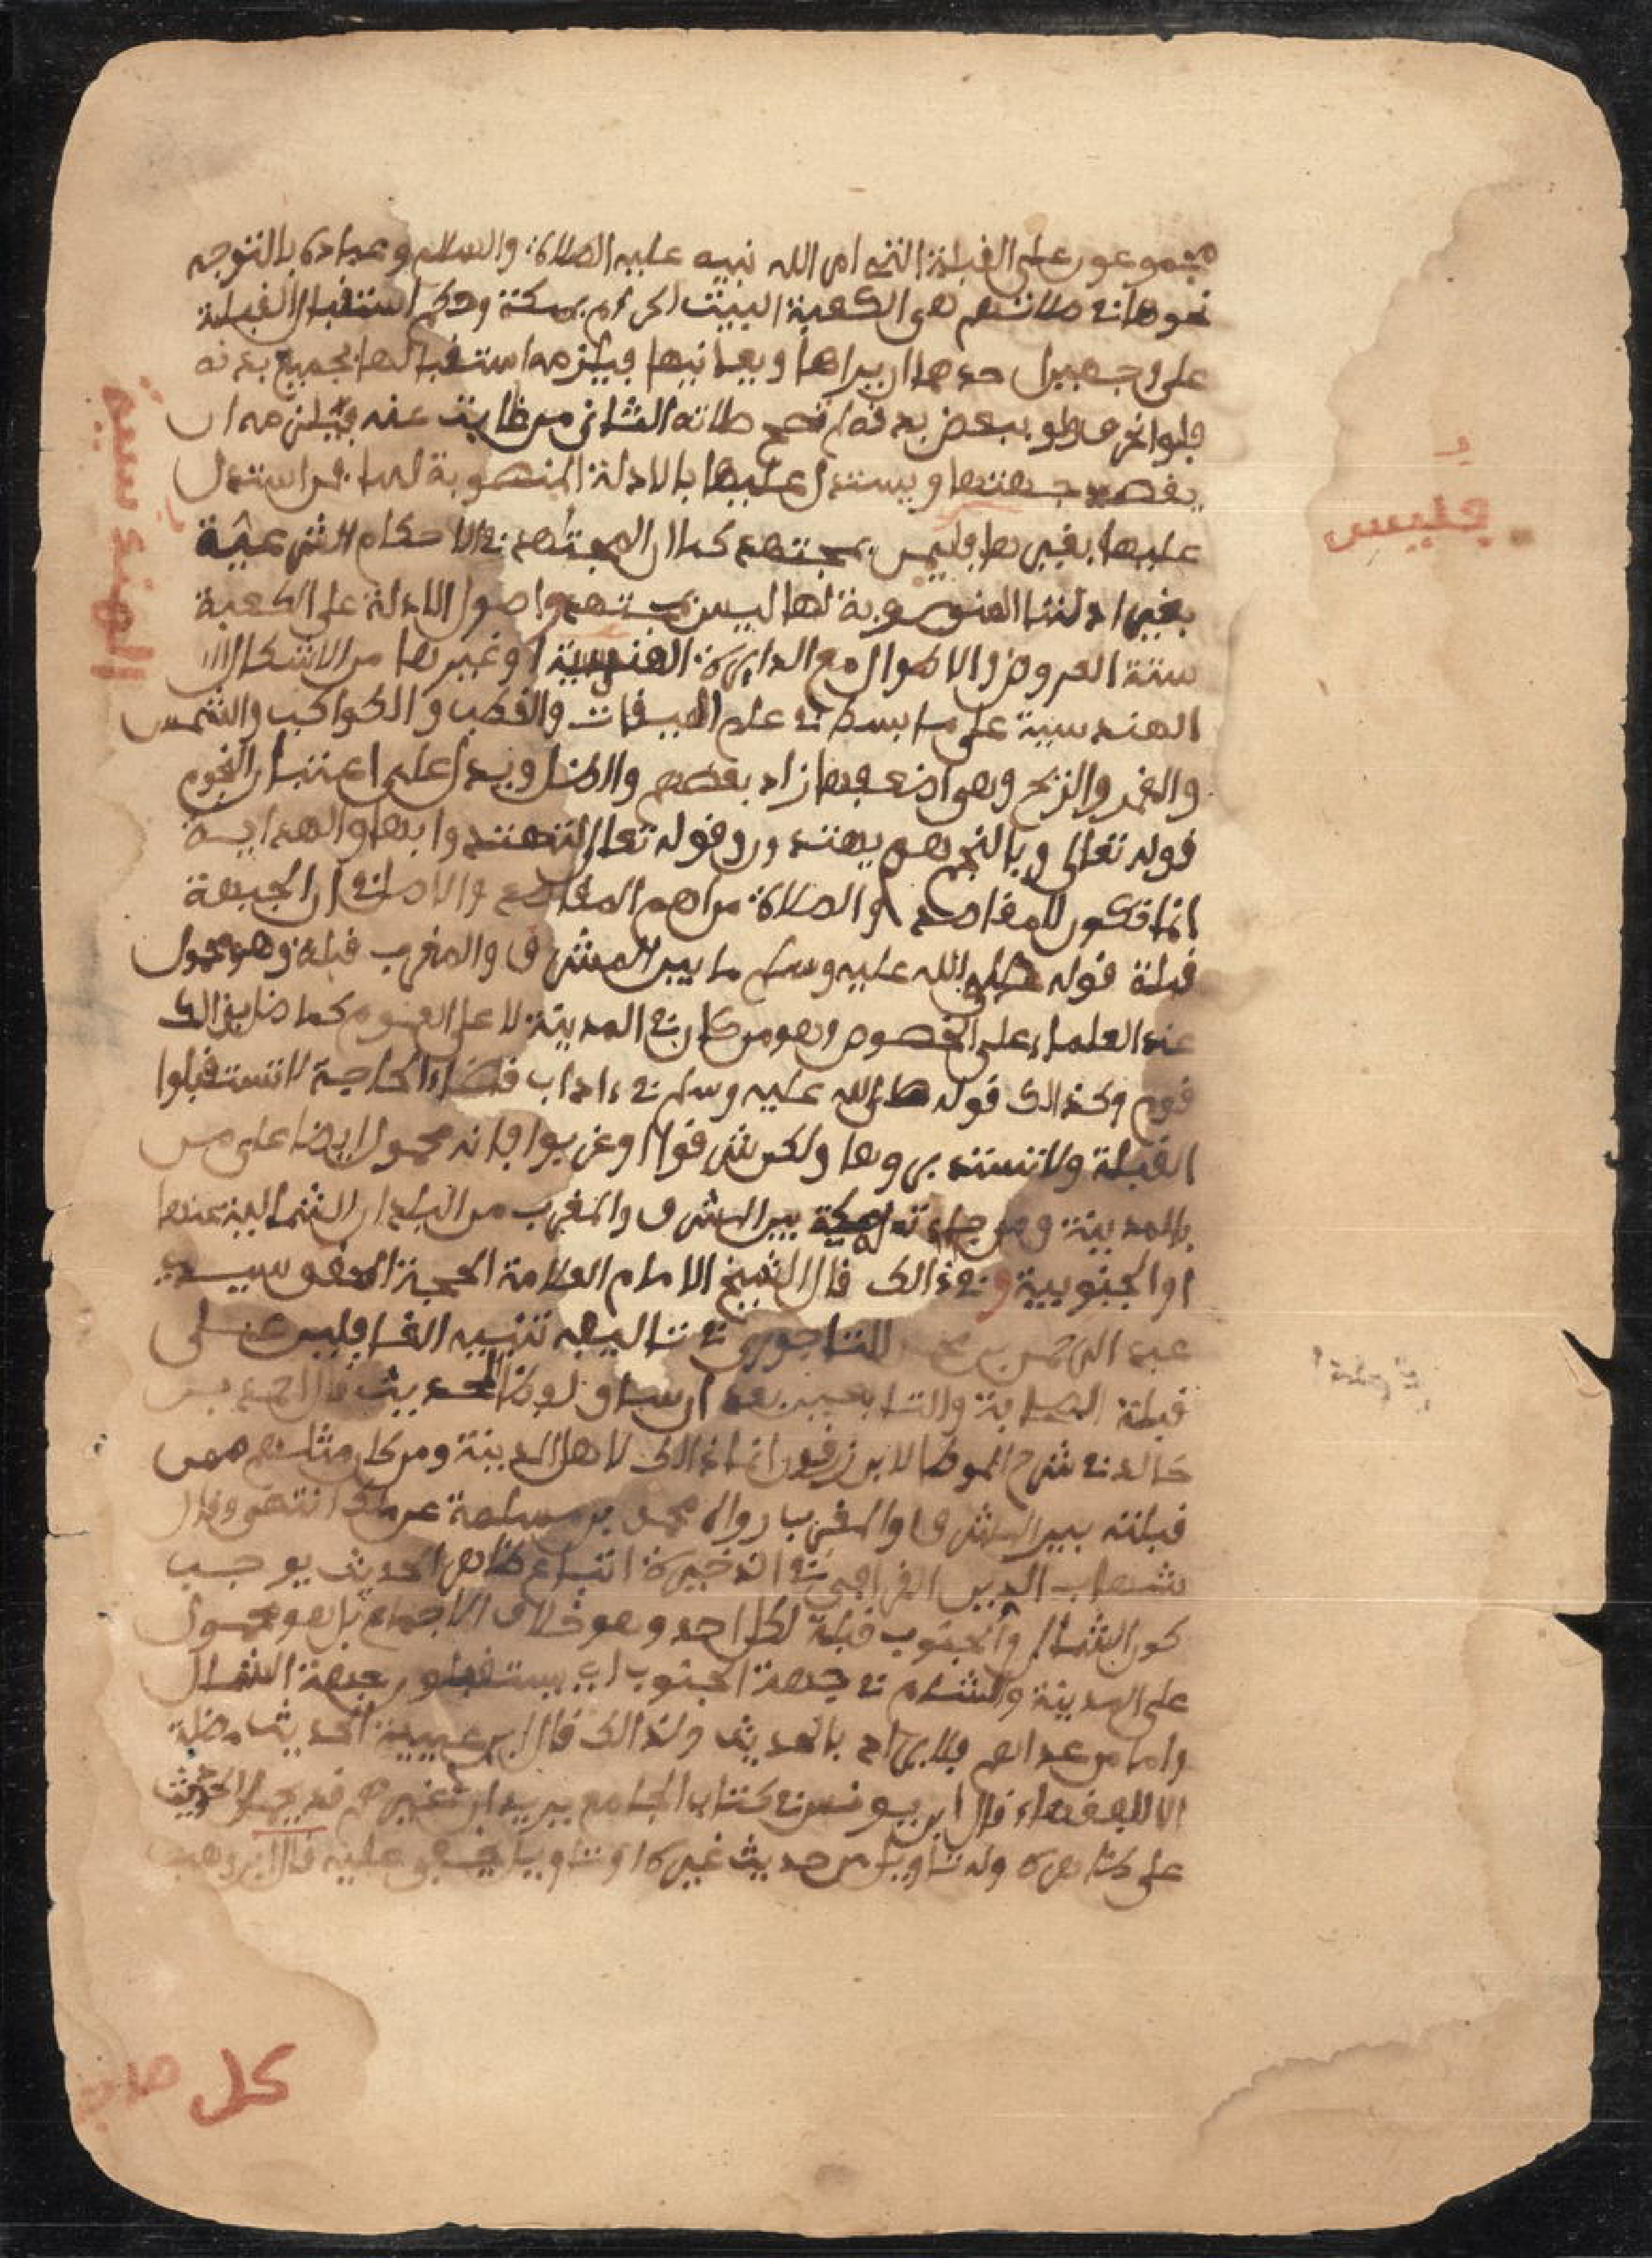 مجموعون على القبلة التي امر الله نبيه عليه الصلاة والسلام وعباده بالتوجه
نحوها في صلاتهم هي الكعبة البيت الحرام بمكة وحكم استقبال القبلة
على وجهين احدهما ان يراها ويعاينها فيلزمه استقبالها بجميع بدنه
فلو انحرف ولو ببعض بدنه لم تصح صلاته الثاني من غابت عنه فيلزمه ان
يقصد جهتها ويستدل عليها بالادلة المنصوبة لها فمن استدل
عليها بغيرها فليس بمجتهد كما ان المجتهد في الاحكام الشرعية
بغير ادلتها المنصوبة لها ليس بمجتهد واصول الادلة على الكعبة
ستة العروض والاطوال مع الدايرة الهندسية او غيرها من الاشكال
الهندسية على ما بسط في علم الميقات والقطب والكواكب والشمس
والقمر والريح وهي اضعفها زاد بعضهم والجبال ويدل على اعتبار النجوم
قوله تعالى وبالنجم هم يهتدون وقوله تعالى لتهتدوا بها والهداية
انما تكون للمقاصد والصلاة من اهم المقاصد والاصل في ان الجهة
قبلة قوله صلى الله عليه وسلم ما بين المشرق والمغرب قبلة وهو محمول
عند العلماء على الخصوص وهو من كان في المدينة لا على العموم كما ضل بذالك
قوم وكذالك قوله صلى الله عليه وسلم في ءاداب قضاء الحاجة لا تستقبلوا
القبلة ولا تستدبروها ولكن شرقوا او غربوا فانه محمول ايضا على من
بالمدينة ومن جاءته مكة بين المشرق والمغرب من البلدان الشمالية عنها
او الجنوبية وفي ذالك قال الشيخ الامام العلامة الحجة المحقق سيدي
عبد الرحمن بن محمد التاجوري في تاليفه تنبيه الغافلين على
قبلة الصحابة والتابعين بعد ان ساق لفظ الحديث قال احمد بن
خالد في شرح الموطا لابن زرقون انما ذالك لاهل المدينة ومن كان مثلهم ممن
قبلته بين المشرق والمغرب رواه محمد بن مسلمة عن مالك انتهى وقال
شهاب الدين القرافي في الذخيرة اتباع ظاهر الحديث يوجب
كون الشمال والجنوب قبلة لكل احد وهو خلاف الاجماع بل هو محمول
على المدينة والشام في جهة الجنوب اي يستقبلون جهة الشمال
واما من عداهم فلا يراد بالحديث ولذالك قال ابن عيينة الحديث مضلة
الا للفقهاء قال ابن يونس في كتاب الجامع يريد ان غيرهم قد يحمل الحديث
على ظاهره وله تاويل من حديث غيره او تاويل خفي عليه قال ابن وهب
فليس
الهندسية
كل